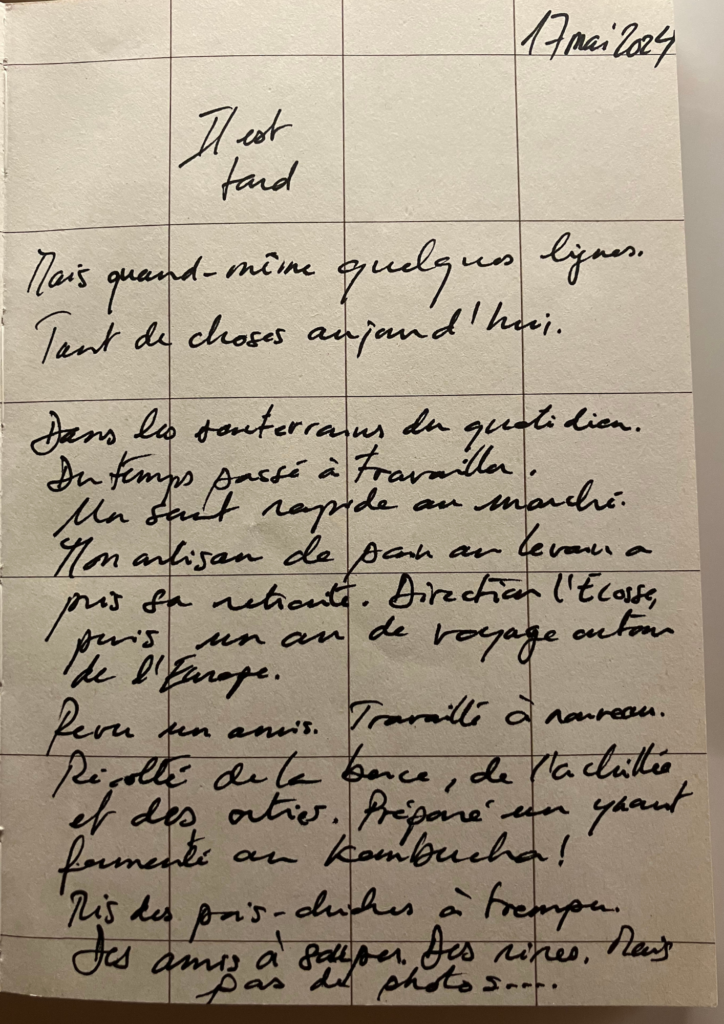 17 mai 2024
Il est
tard
Mais quand-même quelques lignes.
Tant de choses aujourd'hui.
Dans les souterrains du quotidien.
Du temps passé à travailler.
Un saut rapide au marché.
Mon artisan de pain au levain a
pris sa retraite. Direction l'Ecosse,
puis un an de voyage autour
de l'Europe.
Revu un amis. Travaillé à nouveau.
Récolté de la berce, de l'achillée
et des orties. Préparé un yaourt
fermenté au Kombucha!
Mis des pois-chiches à tremper.
Des amis à souper. Des rires. Mais
pas de photos....